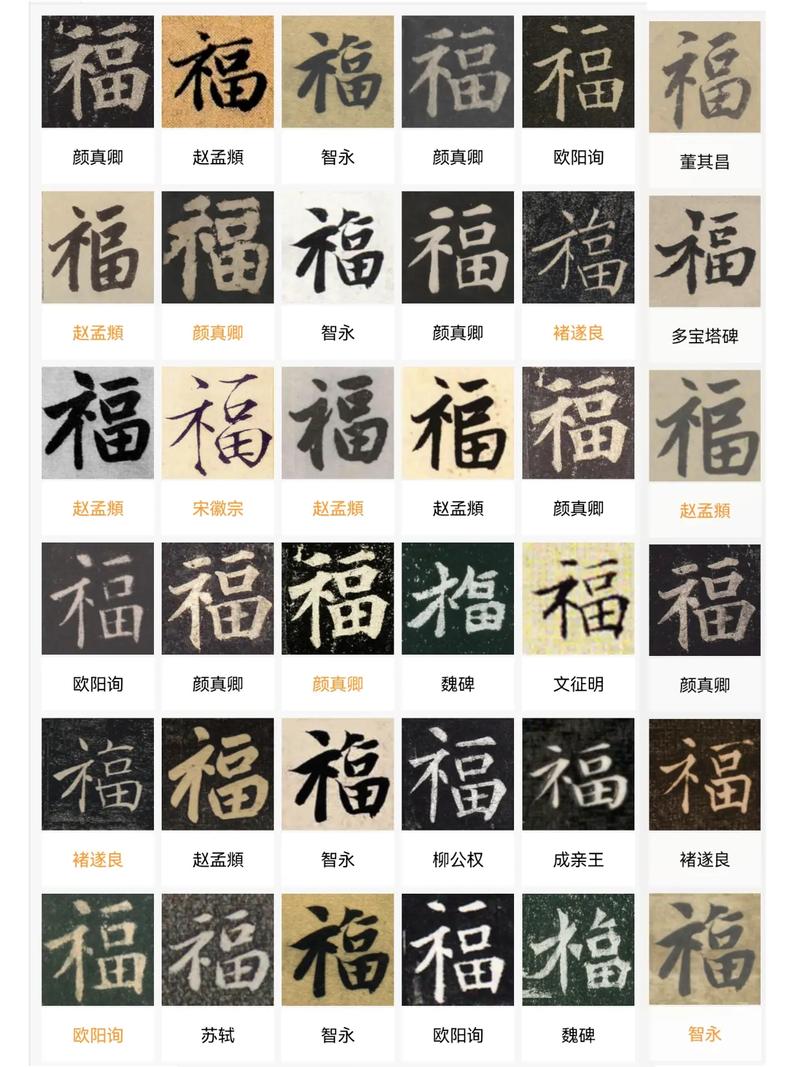 福 福 福 福 福 福
颜真卿 赵孟頫 智永 颜真卿 欧阳询 董其昌
福 福 福 福 福 福
赵孟頫 颜真卿 智永 颜真卿 褚遂良 多宝塔碑
福 福 福 福 福 福
赵孟頫 宋徽宗 赵孟頫 赵孟頫 颜真卿 赵孟頫
福 福 福 福 福 福
欧阳询 颜真卿 颜真卿 魏碑 文征明 颜真卿
福 福 福 福 福 福
褚遂良 赵孟頫 智永 柳公权 成亲王 褚遂良
福 福 福 福 福 福
欧阳询 苏轼 智永 欧阳询 魏碑 智永